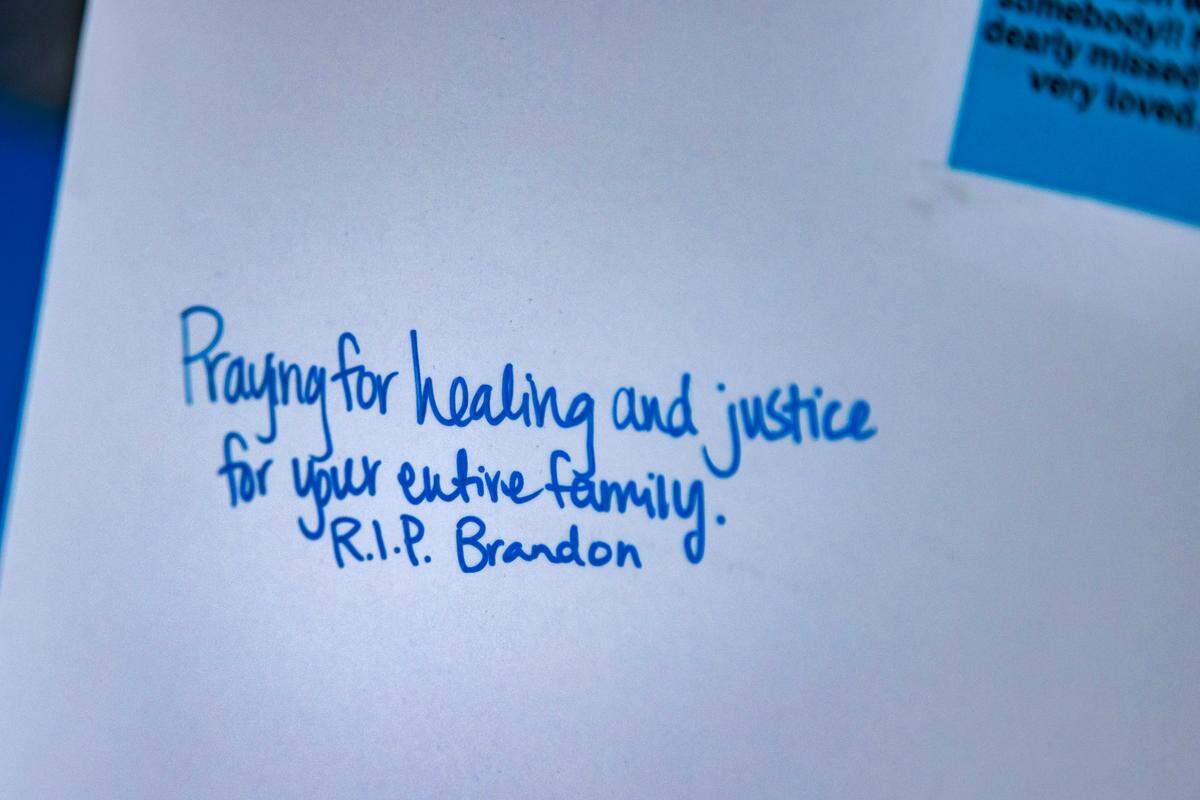 somebody!!
dearly missed
very loved.
Praying for healing and justice
for your entire family.
R.I.P. Brandon